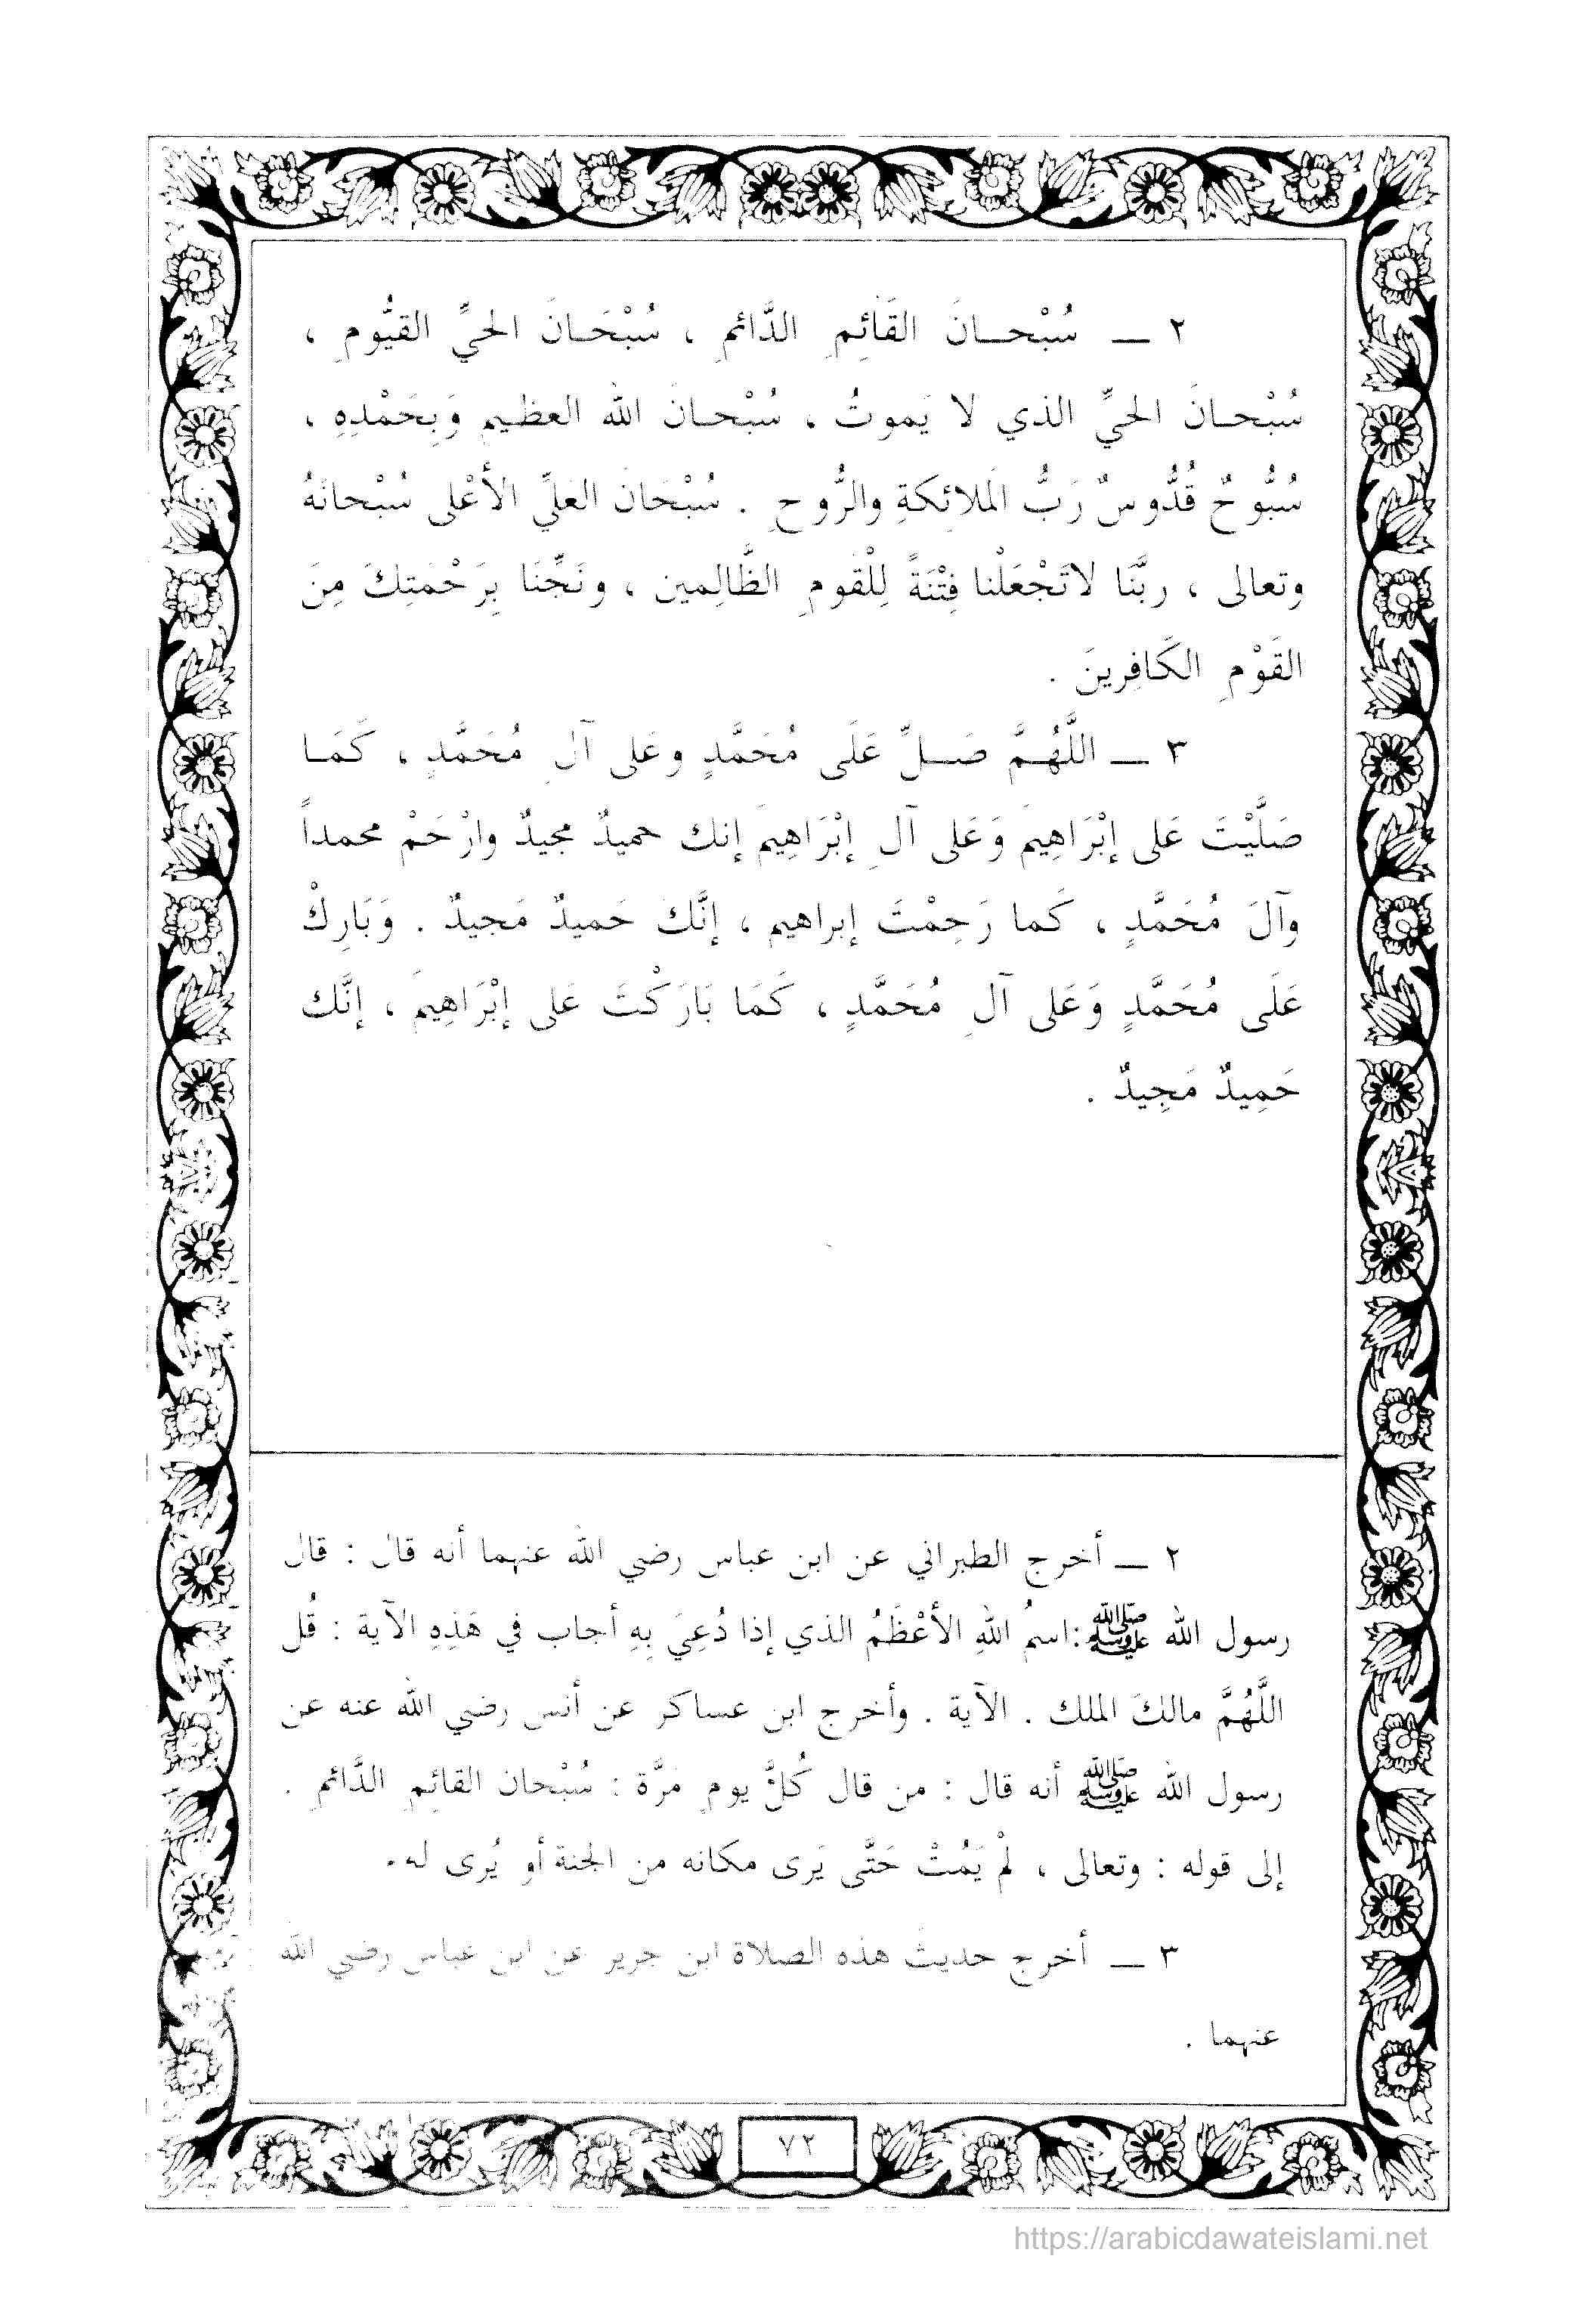 ٢ ــ سُبْحــانَ القَائِمِ الدَّائمِ ، سُبْحَـانَ الحيِّ القيُّومِ ،
سُبْحـانَ الحيِّ الذي لا يَموتُ ، سُبْحـانَ الله العظيمِ وَبِحَمْدِهِ ،
سُبُّوحٌ قُدُّوسٌ رَبُّ المَلائِكةِ والرُّوحِ . سُبْحَانَ العَليِّ الأعْلى سُبْحانَهُ
وتعالى ، ربَّنَا لاتَجْعَلْنا فِتْنَةً لِلْقَومِ الظَّالِمين ، ونَجِّنَا بِرَحْمَتِكَ مِنَ
القَوْمِ الكَافِرينَ .
٣ ــ اللَّهُمَّ صَـلِّ عَلَى مُحَمَّدٍ وعَلى آلِ مُحَمَّدٍ ، كَمَـا
صَلَّيْتَ عَلى إبْرَاهِيمَ وَعَلى آلِ إبْرَاهِيمَ إنك حميدٌ مجيدٌ وارْحَمْ محمداً
وآلَ مُحَمَّدٍ ، كَما رَحِمْتَ إبراهيم ، إنَّكَ حَميدٌ مَجيدٌ . وَبَارِكْ
عَلَى مُحَمَّدٍ وَعَلى آلِ مُحَمَّدٍ ، كَمَا بَارَكْتَ عَلى إبْرَاهِيمَ ، إنَّك
حَمِيدٌ مَجِيدٌ .
٢ ــ أخرج الطبراني عن ابن عباس رضي الله عنهما أنه قال : قال
رسول الله ﷺ:اسمُ اللهِ الأعْظَمُ الذي إذا دُعِيَ بِهِ أجاب في هَذِهِ الآية : قُل
اللَّهُمَّ مالكَ الملك . الآية . وأخرج ابن عساكر عن أنس رضي الله عنه عن
رسول الله ﷺ أنه قال : من قال كُلَّ يومٍ مَرَّة : سُبْحان القائِمِ الدَّائمِ .
إلى قوله : وتعالى ، لمْ يَمُتْ حَتَّى يَرى مكانه من الجنة أو يُرى له.
٣ ــ أخرج حديث هذه الصلاة ابن جرير عن ابن عباس رضي الله
عنهما .
٧٢
https://arabicdawateislami.net